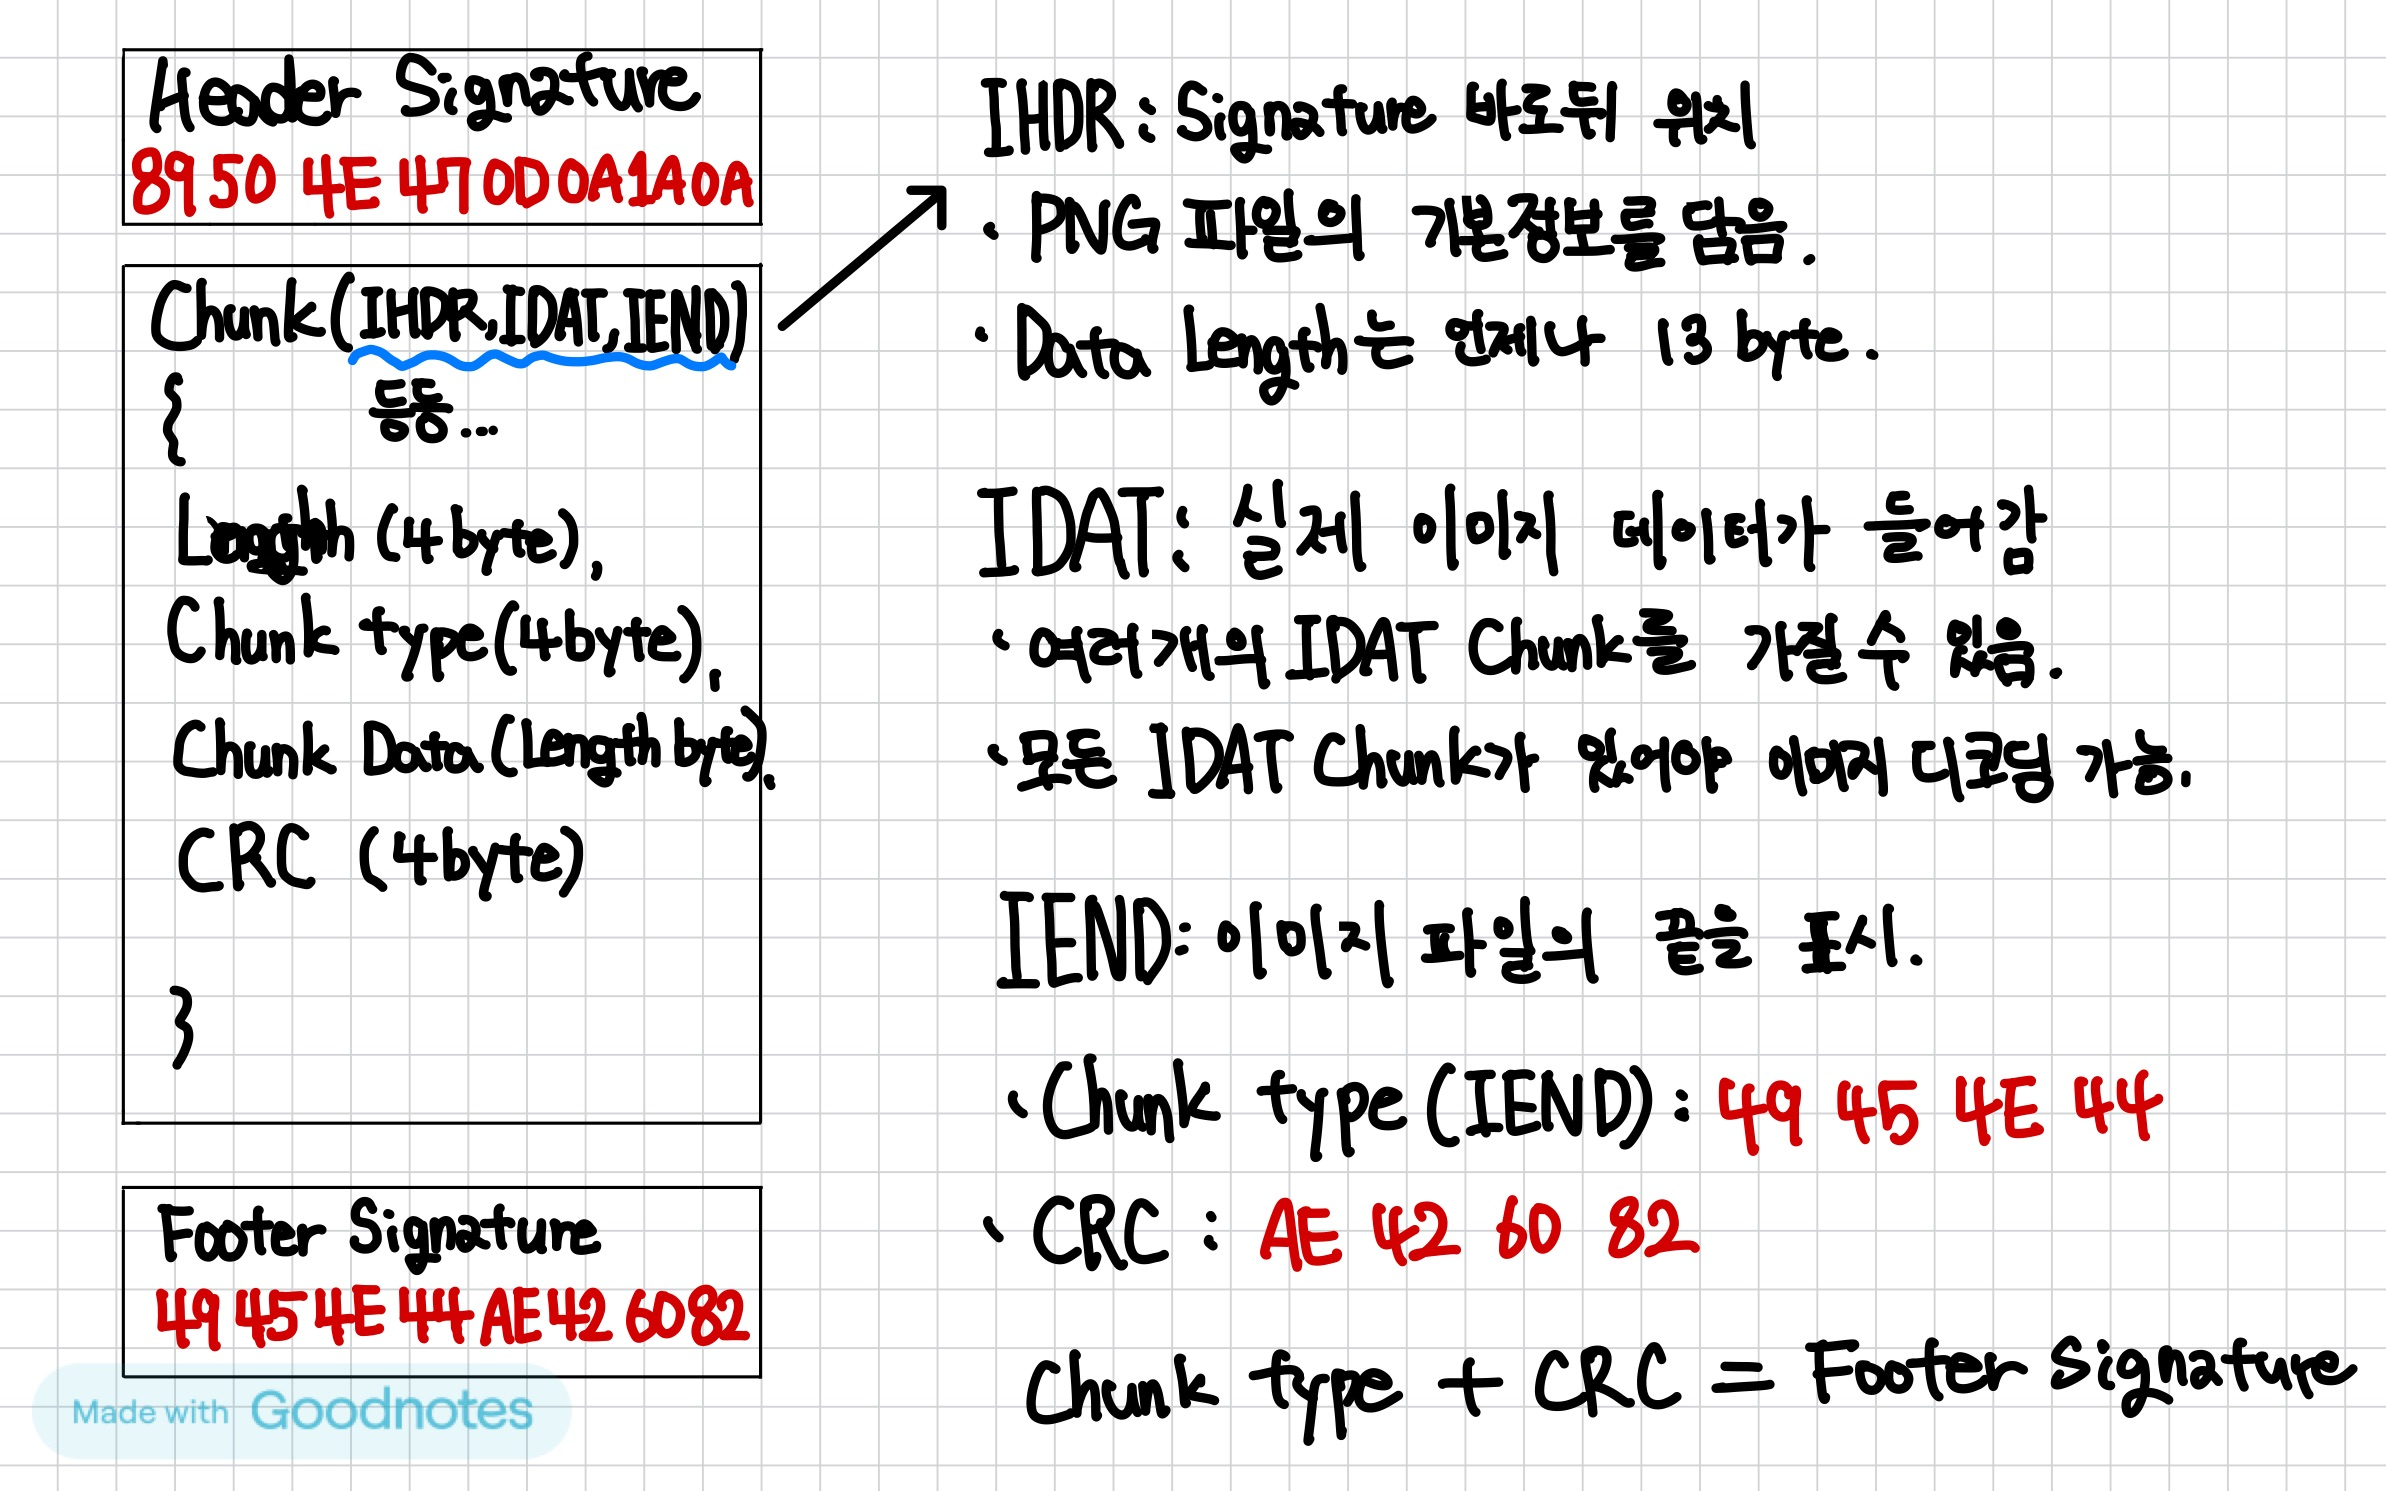 Header Signature
89 50 4E 47 0D 0A 1A 0A
Chunk (IHDR, IDAT, IEND)
등등...
{
Length (4 byte),
Chunk type (4 byte),
Chunk Data (Length byte),
CRC (4 byte)
}
Footer Signature
49 45 4E 44 AE 42 60 82
Made with Goodnotes
IHDR : Signature 바로뒤 위치
· PNG 파일의 기본정보를 담음.
· Data Length는 언제나 13 byte.
IDAT : 실제 이미지 데이터가 들어감
· 여러개의 IDAT Chunk를 가질 수 있음.
· 모든 IDAT Chunk가 있어야 이미지 디코딩 가능.
IEND : 이미지 파일의 끝을 표시.
· Chunk type (IEND) : 49 45 4E 44
· CRC : AE 42 60 82
Chunk type + CRC = Footer Signature